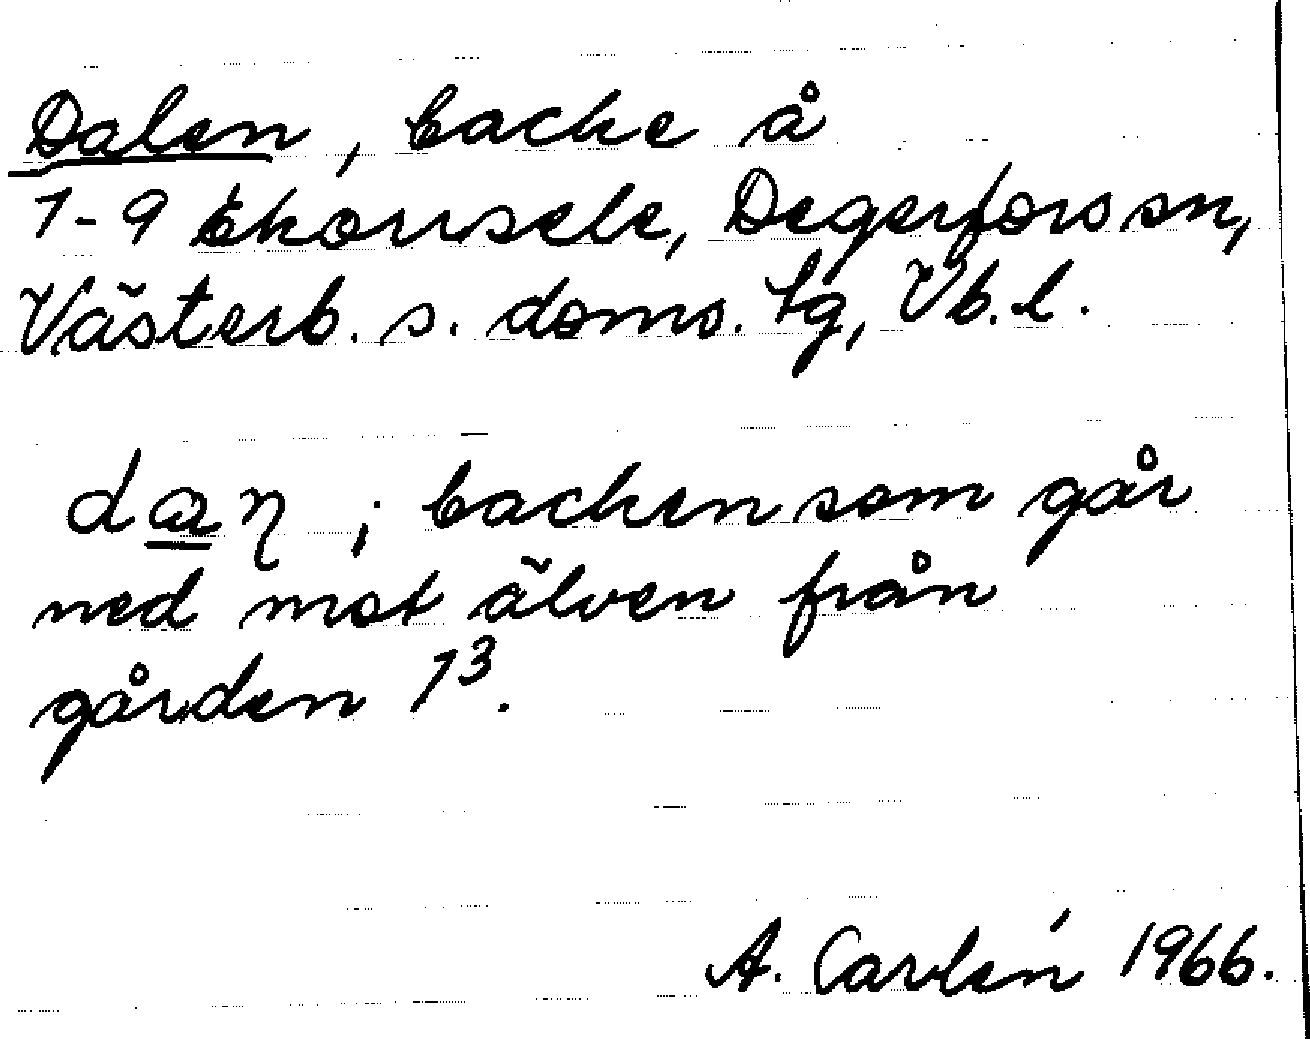 Dalen, backe å
1-9 Ekorrsele, Degerfors sn,
Västerb. s. doms. tg, Vb. l.
dan; backen som går
ned mot älven från
gården 1³.
A. Carlén 1966.